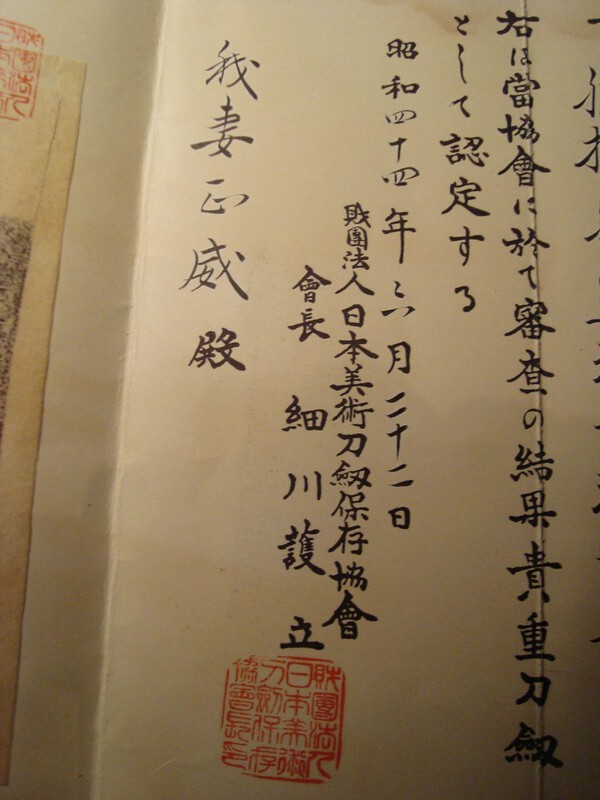 右は當協會に於て審査の結果貴重刀劔
として認定する
昭和四十四年六月二十二日
財團法人日本美術刀劔保存協會
會長 細川護立
我妻正威殿
財團法人
日本美術
刀劔保存
協會長印
財團法人